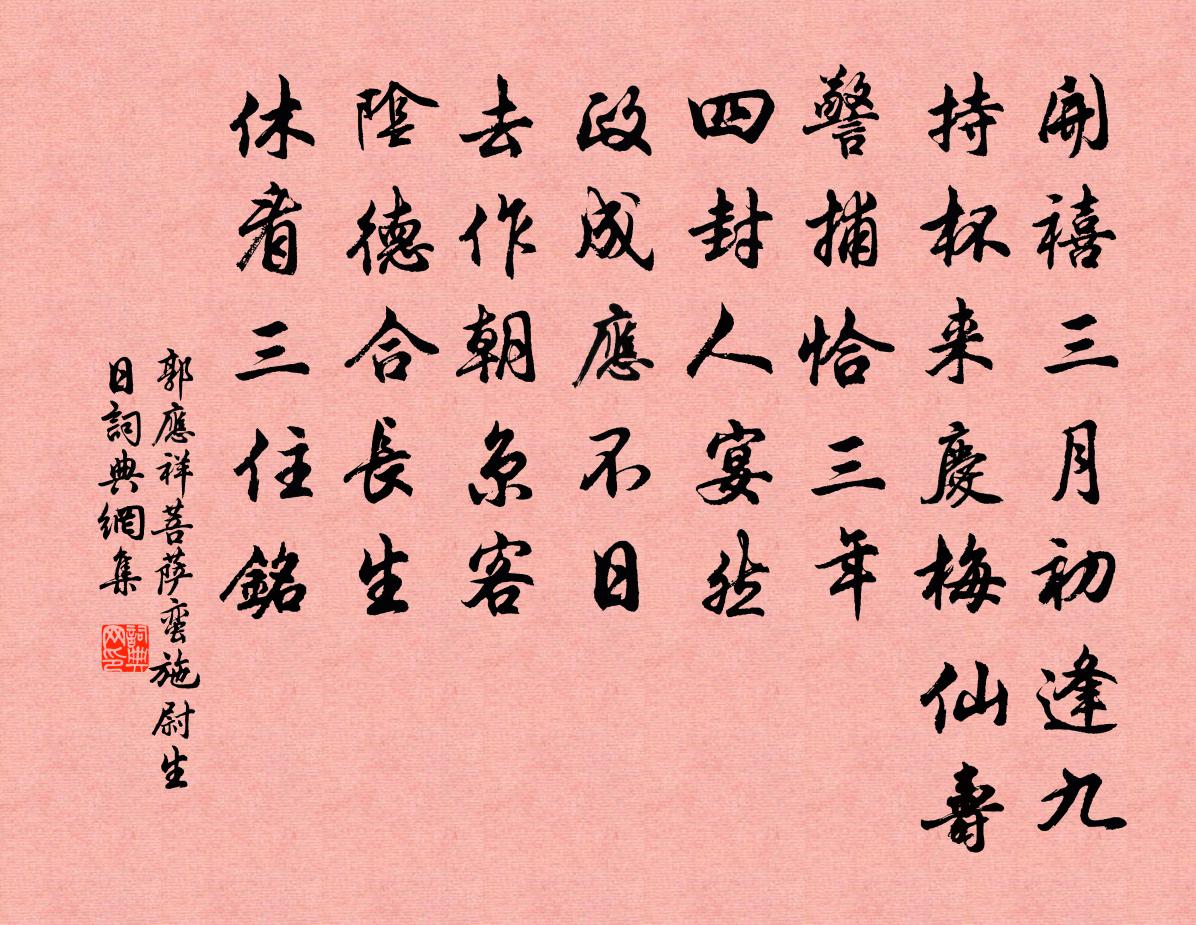 開禧三月初逢九
持杯来慶梅仙壽
警捕恰三年
四封人宴然
政成應不日
去作朝京客
陰德合長生
休看三住銘
郭應祥菩薩蠻施尉生
日詞典網集
詞典网印